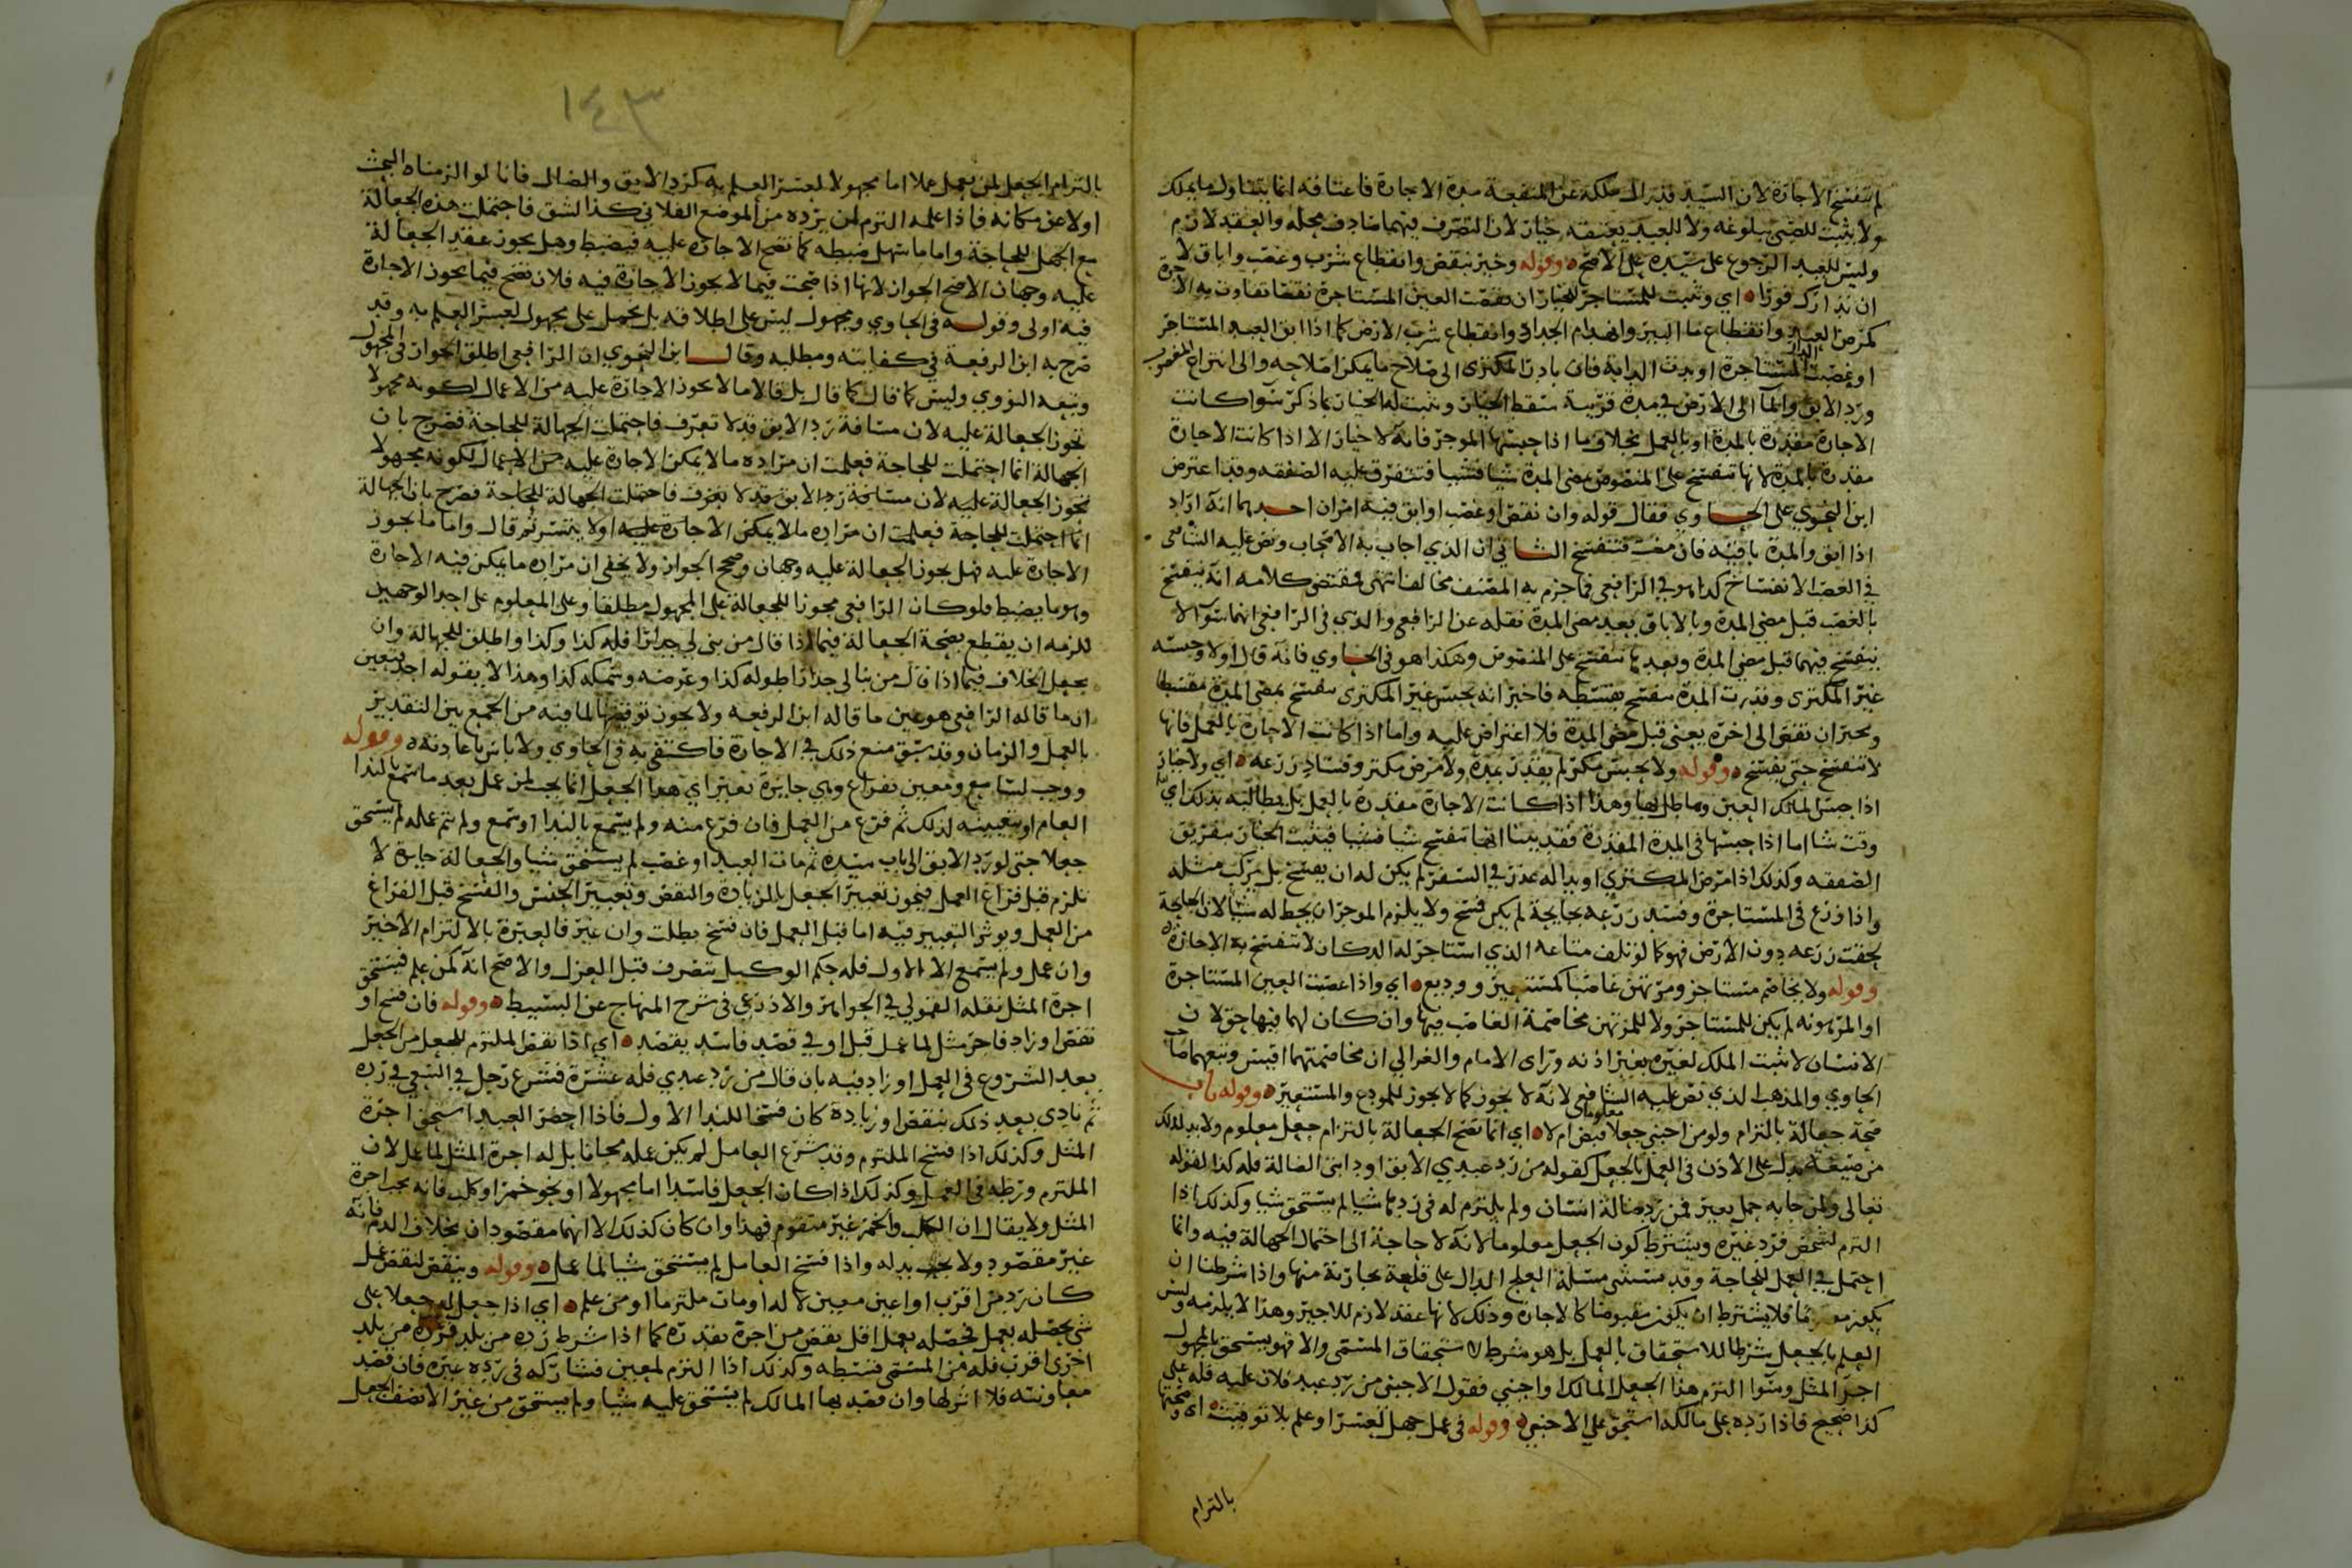 لم تنفسخ الاجارة لان السيد قد ازال ملكه عن المنفعة مدة الاجارة فاعتاقه انما يتناول ما يملك
ولا يثبت للصبي ببلوغه ولا للعبد بعتقه خيار لان التصرف فيهما صادف محله والعقد لازم
وليس للعبد الرجوع على سيده على الاصح وقوله وخير بنقص وانقطاع شرب وغصب واباق لا
ان تدارك فورا اي وثبت للمستاجر الخيار ان نقصت العين المستاجرة نقصا تفاوت به الاجرة
كمرض العبد وانقطاع ما البير وانهدام الجدار وانقطاع شرب الارض كما اذا ابق العبد المستاجر
او غصبت الدار المستاجرة او ندت الدابة فان بادر المكرى الى صلاح ما يمكن اصلاحه والى انتزاع المغصوب
ورد الابق والما الى الارض في مدة قريبة سقط الخيار ويثبت له الخيار بما ذكر سوا كانت
الاجارة مقدرة بالمدة او بالعمل بخلاف ما اذا حبسها الموجر فانه لا خيار الا اذا كانت الاجارة
مقدرة بالمدة لانها تنفسخ على المنصوص بمضي المدة شيا فشيا فتتفرق عليه الصفقه وقد اعترض
ابن النحوي على الحاوي فقال قوله وان نقص او غصب او ابق فيه امران احدهما انه اراد
اذا ابق والمدة باقية فان مضت فتنفسخ الثاني ان الذي اجاب به الاصحاب ونص عليه الشافعي
في الغصب الانفساخ كذا هو في الرافعي فما جزم به المصنف مخالف انتهى ومقتضى كلامه انه ينفسخ
بالغصب قبل مضي المدة وبالاباق بعد مضي المدة نقله عن الرافعي والذي في الرافعي انهما سوا لا
ينفسخ فيهما قبل مضي المدة وبعدها تنفسخ على المنصوص وهكذا هو في الحاوي فانه قال اولا وحبسه
غير المكترى وقدرت المدة ينفسخ بقسطه فاخبر انه بحبس غير المكترى ينفسخ بمضي المدة مقسطا
وبخير ان نقص الى اخره يعنى قبل مضي المدة فلا اعتراض عليه واما اذا كانت الاجارة بالعمل فانها
لا تنفسخ حتى يفسخ وقوله ولا بحبس مكر لم يقدر بمدة ولا مرض مكتر وفساد زرعه اي ولا خيار
اذا حبس المالك العين وماطل بها وهذا اذا كانت الاجارة مقدرة بالعمل بل يطالبه بذلك اي
وقت شا اما اذا حبسها في المدة المقدرة فقد بينا انها تنفسخ شيا فشيا فيثبت الخيار بتفريق
الصفقه وكذلك اذا مرض المكتري او بدا له عذر في السفر لم يكن له ان يفسخ بل يركب مثله
واذا زرع في المستاجرة وفسد زرعه بجايحة لم يكن فسخ ولا يلزم الموجر ان يحط له شيا لان الجايحة
لحقت زرعه دون الارض فهو كما لو تلف متاعه الذي استاجر له الدكان لا تنفسخ به الاجارة
وقوله ولا يخاصم مستاجر ومرتهن غاصبا كمستعير ووديع اي واذا غصبت العين المستاجرة
او المرهونه لم يكن للمستاجر ولا للمرتهن مخاصمة الغاصب فيها وان كان لهما فيها حق لان
الانسان لا يثبت الملك لغيره بغير اذنه وراى الامام والغزالي ان مخاصمتهما اقيس وتبعهما صاحب
الحاوي والمذهب الذي نص عليه الشافعي لانه لا يجوز كما لا يجوز للمودع والمستعير وقوله باب
صحة جعالة بالتزام ولو من اجنبي جعلا معلوما قبض ام لا اي انما تصح الجعالة بالتزام جعل معلوم ولا بد لذلك
من صيغة تدل على الاذن في العمل بالجعل كقوله من رد عبدي الابق او دابتي الضالة فله كذا لقوله
تعالى ولمن جا به حمل بعير فمن رد ضالة انسان ولم يلتزم له في ردها شيا لم يستحق شيا وكذلك اذا
التزم لشخص فرد غيره ويشترط كون الجعل معلوما لانه لا حاجة الى احتمال الجهالة فيه وانما
احتمل في العمل للحاجة وقد تستثنى مسئلة العلج الدال على قلعة بجارية منها واذا شرطنا ان
يكون معلوما فلا يشترط ان يكون مقبوضا كالاجارة وذلك لانها عقد لازم للاجير وهذا لا يلزمه وليس
العلم بالجعل شرطا للاستحقاق بالعمل بل هو شرط لاستحقاق المسمى والا فهو يستحق بالمجهول
اجر المثل وسوا التزم هذا الجعل المالك او اجنبي فقول الاجنبي من رد عبد فلان عليه فله على
كذا صحيح فاذا رده على مالكه استحق على الاجنبي وقوله في عمل جهل لعسر او علم بلا توقيت اي وصحتها
بالتزام
١٤٣
بالتزام الجعل لمن يعمل عملا اما مجهولا لعسر العلم به كرد الابق والضال فانا لو الزمناه البحث
اولا عن مكانه فاذا علمه التزم لمن يرده من الموضع الفلاني كذا لشق فاحتملت هذه الجعالة
مع الجهل للحاجة واما ما سهل ضبطه كما تصح الاجارة عليه فيضبط وهل يجوز عقد الجعالة
عليه وجهان الاصح الجواز لانها اذا صحت فيما لا يجوز الاجارة فيه فلان تصح فيما يجوز الاجارة
فيه اولى وقوله في الحاوي ومجهول ليس على اطلاقه بل يحمل على مجهول لعسر العلم به وقد
صرح به ابن الرفعة في كفايته ومطلبه وقال ابن النحوي ان الرافعي اطلق الجواز في المجهول
وتبعه النووي وليس كما قال كما قال بل قالا ما لا يجوز الاجارة عليه من الاعمال لكونه مجهولا
تجوز الجعالة عليه لان مسافة رد الابق قد لا تعرف فاحتملت الجهالة للحاجة فصرح بان
الجهالة انما احتملت للحاجة فعلمت ان مراده ما لا يمكن الاجارة عليه من الاعمال لكونه مجهولا
تجوز الجعالة عليه لان مسافة رد الابق قد لا تعرف فاحتملت الجهالة للحاجة فصرح بان الجهالة
انما احتملت للحاجة فعلمت ان مراده ما لا يمكن الاجارة عليه او لا يتيسر ثم قال واما ما يجوز
الاجارة عليه فهل يجوز الجعالة عليه وجهان وصحح الجواز ولا يخفى ان مراده ما يمكن فيه الاجارة
وهو ما يضبط فلو كان الرافعي مجوزا للجعالة على المجهول مطلقا وعلى المعلوم على احد الوجهين
للزمه ان يقطع بصحة الجعالة فيما اذا قال من بنى لي جدارا فله كذا وكذا واطلق للجهالة وان
يجعل الخلاف فيما اذا قال من بنا لي جدارا طوله كذا وعرضه وسمكه كذا وهذا لا يقوله احد فتعين
ان ما قاله الرافعي هو عين ما قاله ابن الرفعه ولا يجوز توقيتها لما فيه من الجمع بين التقدير
بالعمل والزمان وقد سبق منع ذلك في الاجارة فاكتفى به في الحاوي ولا باس باعادته وقوله
ووجب لسامع ومعين بفراغ وهي جايزة تغير اي هذا الجعل انما يجب لمن عمل بعد ما سمع الندا
العام او تعيينه لذلك ثم فرغ من العمل فان فرغ منه ولم يسمع بالندا او سمع ولم يتم عمله لم يستحق
جعلا حتى لو رد الابق الى باب سيده ثم مات العبد او غصب لم يستحق شيا والجعالة جايزة لا
تلزم قبل فراغ العمل فيجوز تغيير الجعل بالزيادة والنقص وتغيير الجنس والفسخ قبل الفراغ
من العمل ويوثر التغيير فيه اما قبل العمل فان فسخ بطلت وان غير فالعبرة بالالتزام الاخير
وان عمل ولم يسمع الا الاول فله حكم الوكيل يتصرف قبل العزل والاصح انه كمن علم فيستحق
اجرة المثل نقله القمولي في الجواهر والاذرعي في شرح المنهاج عن البسيط وقوله فان فسخ او
نقص او زاد فاجر مثل لما عمل قبل او في قصد فاسد يقصد اي اذا نقض الملتزم للجعل من الجعل
بعد الشروع في العمل او زاد فيه بان قال من رد عبدي فله عشرة فشرع رجل في السعي في رده
ثم نادى بعد ذلك بنقص او زيادة كان فسخا للندا الاول فاذا احضر العبد استحق اجرة
المثل وكذلك اذا فسخ الملتزم وقد شرع العامل لم يكن عمله مجانا بل له اجرة المثل لما عمل لان
الملتزم ورطه في العمل وكذلك اذا كان الجعل فاسدا اما مجهولا او نحو خمر او كلب فانه يجب اجرة
المثل ولا يقال ان الكلب والخمر غير متقوم فهذا وان كان كذلك الا انهما مقصودان بخلاف الدم فانه
غير مقصود ولا يجب بدله واذا فسخ العامل لم يستحق شيا لما عمل وقوله وينقص لنقص عمل
كان رد من اقرب او اعين معين لا له او مات ملتزما او من علم اي اذا جعل له جعلا على
شي يحصله بعمل فحصله بعمل اقل نقص من اجرة بقدره كما اذا شرط رده من بلد فرده من بلد
اخرى اقرب فله من المسمى قسطه وكذلك اذا التزم لمعين فشاركه في رده غيره فان قصد
معاونته فلا اثر لها وان قصد بها المالك لم يستحق عليه شيا ولم يستحق من غير الا نصف الجعل